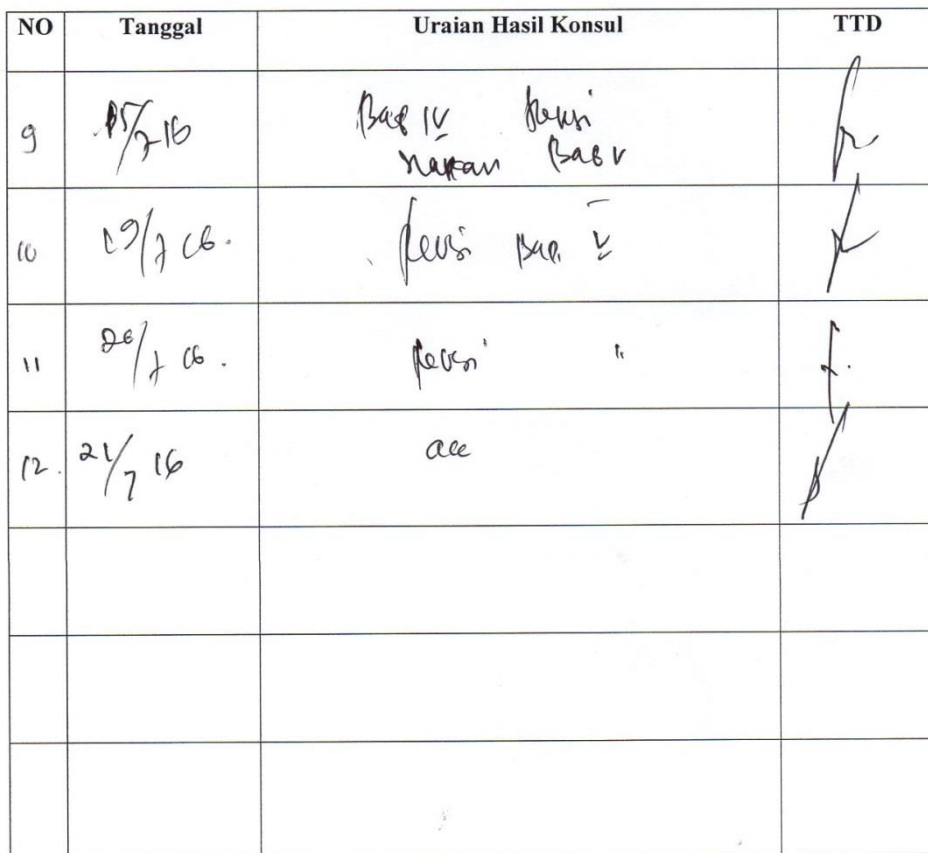 NO Tanggal Uraian Hasil Konsul TTD
9 15/7 16 Bab IV Revisi
Bab V
10 19/7 16. Revisi Bab V
11 20/7 16. Revisi "
12. 21/7 16 acc